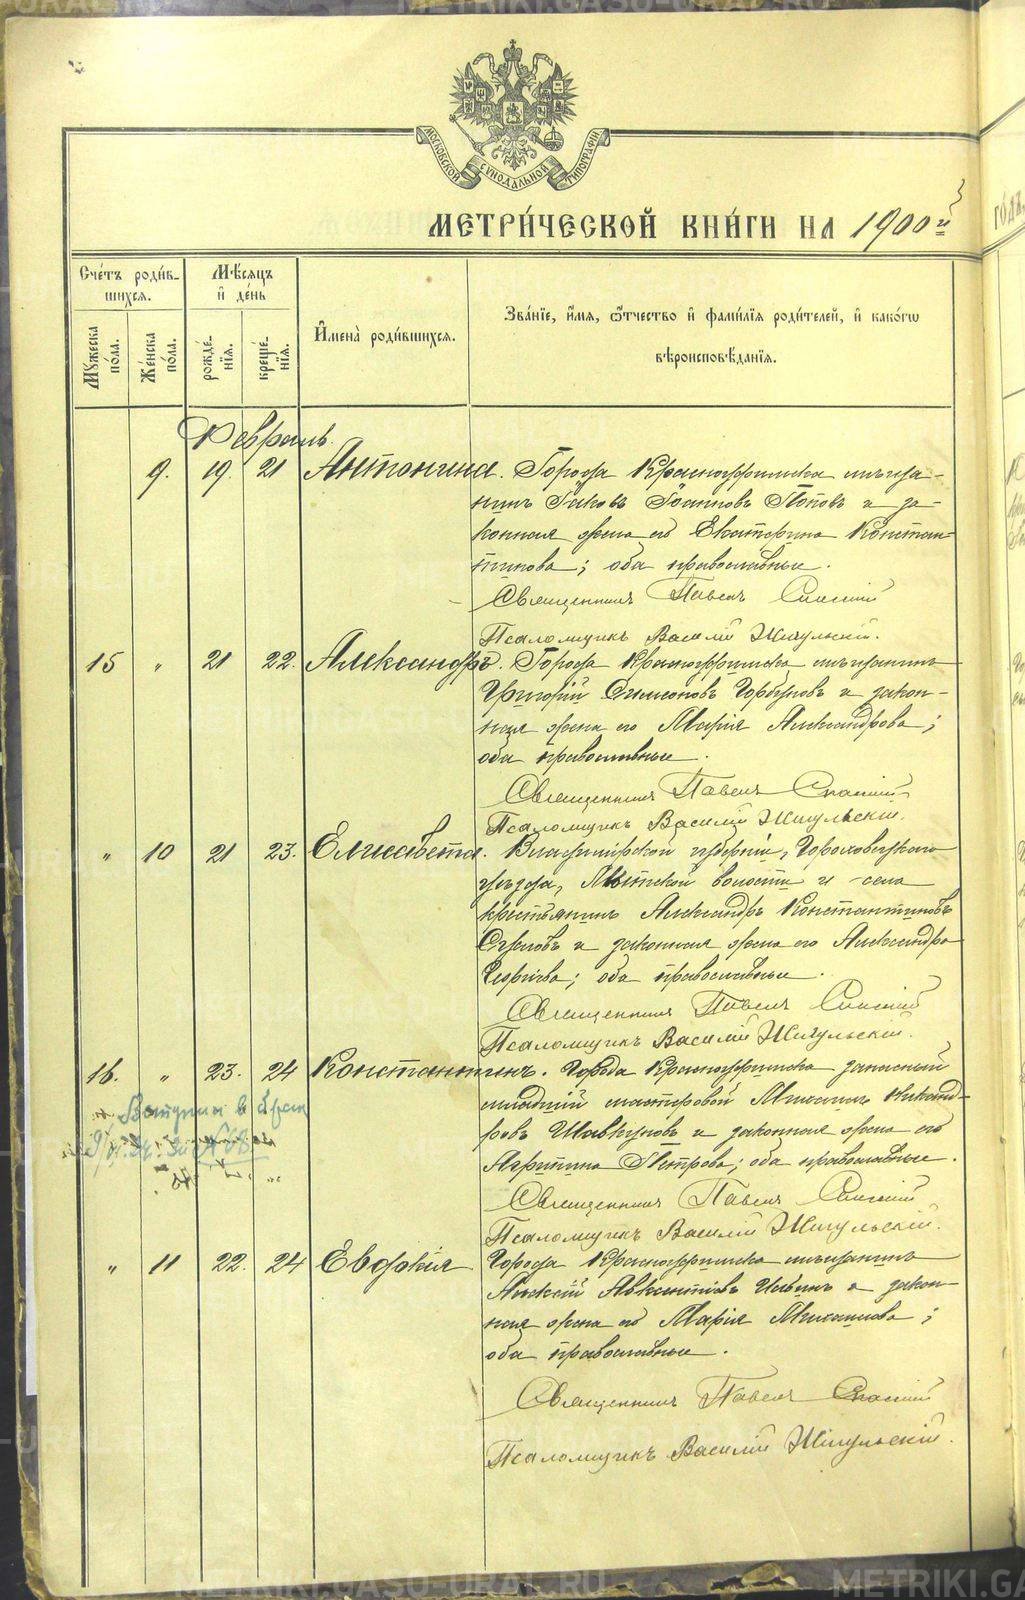 METRIKI.GASO-URAL.RU
МОСКОВСКОЙ СѴНОДАЛЬНОЙ ТИПОГРАФІИ
МЕТРИ́ЧЕСКОЙ КНИ́ГИ НА 1900й
го́дъ
Сче́тъ роди́в-
шихся.
Мѣ́сяцъ
и́ де́нь
Му́жеска по́ла.
Же́нска по́ла.
рожде́-нїя.
креще́-нїя.
Имена̀ роди́вшихся.
Зва́нїе, и́мя, ѻ́тчество и́ фами́лїя роди́телей, и́ како́гѡ
вѣроисповѣ́данїя.
Февраль.
9. 19. 21 Антонина. Города Красноуфимска мѣща-
нинъ Іаковъ Іоанновъ Поповъ и за-
конная жена его Екатерина Констан-
тинова; оба православные.
Священникъ Павелъ Спасскій
Псаломщикъ Василій Жигульскій.
15 " 21 22. Александръ. Города Красноуфимска мѣщанинъ
Григорій Симеоновъ Горбуновъ и закон-
ная жена его Марія Александрова;
оба православные.
Священникъ Павелъ Спасскій
Псаломщикъ Василій Жигульскій.
" 10 21 23. Елисавета. Владимірской губерніи, Гороховецкаго
уѣзда, Мытской волости и села
крестьянинъ Александръ Константиновъ
и законная жена его Александра
Георгіева; оба православные.
Священникъ Павелъ Спасскій
Псаломщикъ Василій Жигульскій.
16. " 23. 24 Константинъ. Города Красноуфимска запасный
младшій мастеровой Михаилъ Никанд-
ровъ Шавкуновъ и законная жена его
Агриппина Петрова; оба православные.
Священникъ Павелъ Спасскій
Псаломщикъ Василій Жигульскій.
" 11 22. 24 Евдокія Города Красноуфимска мѣщанинъ
Алексій Авксентіевъ Ильинъ и закон-
ная жена его Марія Михаилова;
оба православные.
Священникъ Павелъ Спасскій
Псаломщикъ Василій Жигульскій.
METRIKI.GASO-URAL.RU